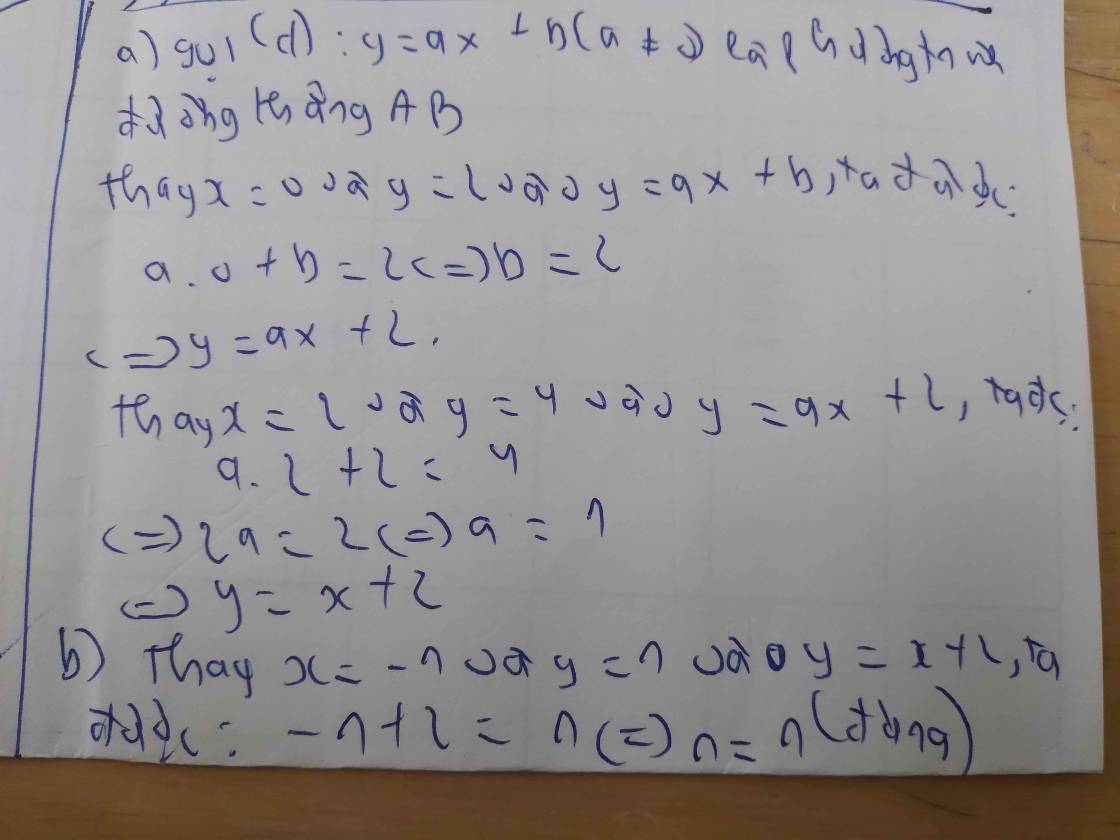 a) gọi (d): y = ax + b (a ≠ 0) là phương trình
đường thẳng AB
thay x = 0 và y = 2 vào y = ax + b, ta được:
a. 0 + b = 2 <=> b = 2
<=> y = ax + 2.
thay x = 2 và y = 4 vào y = ax + 2, ta đc:
a. 2 + 2 = 4
<=> 2a = 2 <=> a = 1
<=> y = x + 2
b) thay x = -1 và y = 1 vào y = x + 2, ta
được: -1 + 2 = 1 <=> 1 = 1 (đúng)